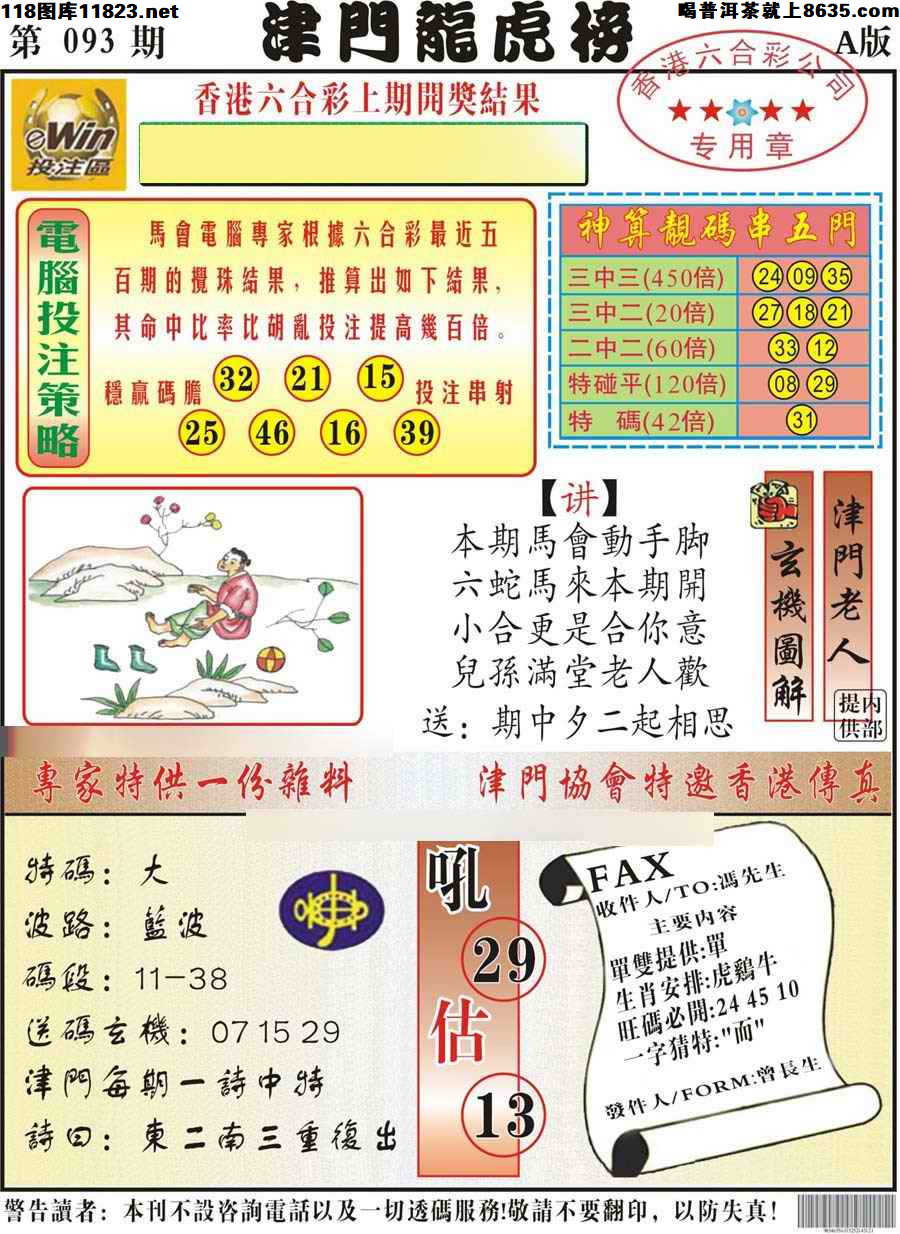 118图库11823.net
喝普洱茶就上8635.com
第 093 期
津門龍虎榜
A版
香港六合彩上期開獎結果
香港六合彩公司
★★★★
专用章
eWin
投注區
電腦投注策略
馬會電腦專家根據六合彩最近五
百期的攪珠結果，推算出如下結果，
其命中比率比胡亂投注提高幾百倍。
穩贏碼膽 32 21 15 投注串射
25 46 16 39
神算靚碼串五門
三中三(450倍) 24 09 35
三中二(20倍) 27 18 21
二中二(60倍) 33 12
特碰平(120倍) 08 29
特 碼(42倍) 31
【讲】
本期馬會動手脚
六蛇馬來本期開
小合更是合你意
兒孫滿堂老人歡
送：期中夕二起相思
玄機圖解
津門老人
内部提供
專家特供一份雜料
津門協會特邀香港傳真
特碼：大
波路：藍波
碼段：11-38
送碼玄機：07 15 29
津門每期一詩中特
詩曰：東二南三重復出
吼
29
估
13
FAX
收件人/TO:馮先生
主要内容
單雙提供:單
生肖安排:虎鷄牛
旺碼必開:24 45 10
一字猜特:"而"
發件人/FORM:曾長生
警告讀者：本刊不設咨詢電話以及一切透碼服務!敬請不要翻印，以防失真!